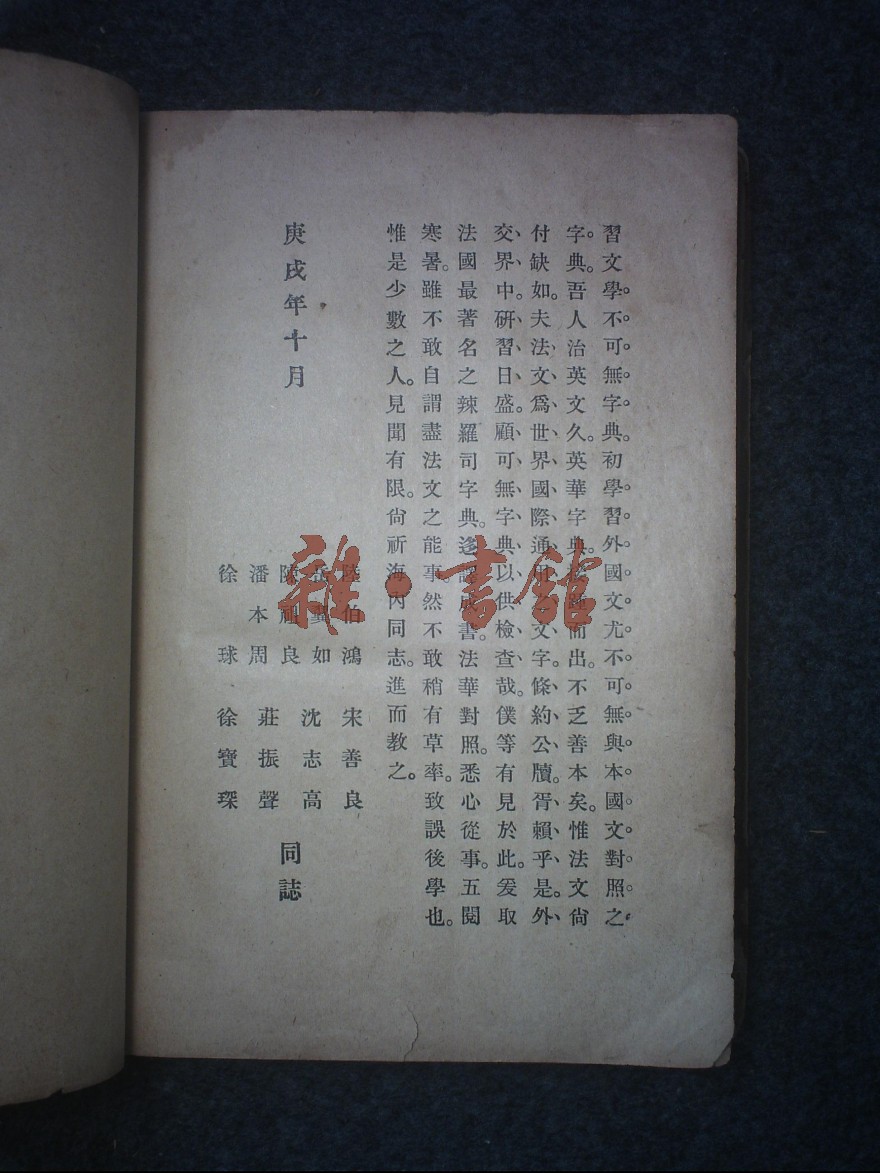 習文學。不可無字典。初學習外國文。尤不可無與本國文對照之
字典。吾人治英文久。英華字典。而出。不乏善本矣。惟法文尙
付缺如。夫法文爲世界國際通用文字。條約公牘。胥賴乎是。外
交界中。硏習日盛。顧可無字典以供檢查哉。僕等有見於此。爰取
法國最著名之辣羅司字典。迻譯成書。法華對照。悉心從事。五閱
寒暑。雖不敢自謂盡法文之能事。然不敢稍有草率。致誤後學也。
惟是少數之人。見聞有限。尙祈海內同志。進而教之。
庚戌年十月
陸伯鴻 宋善良
如 沈志高
陳祖良 莊振聲
潘本周 徐寶琛
徐球
同誌
雜·書館